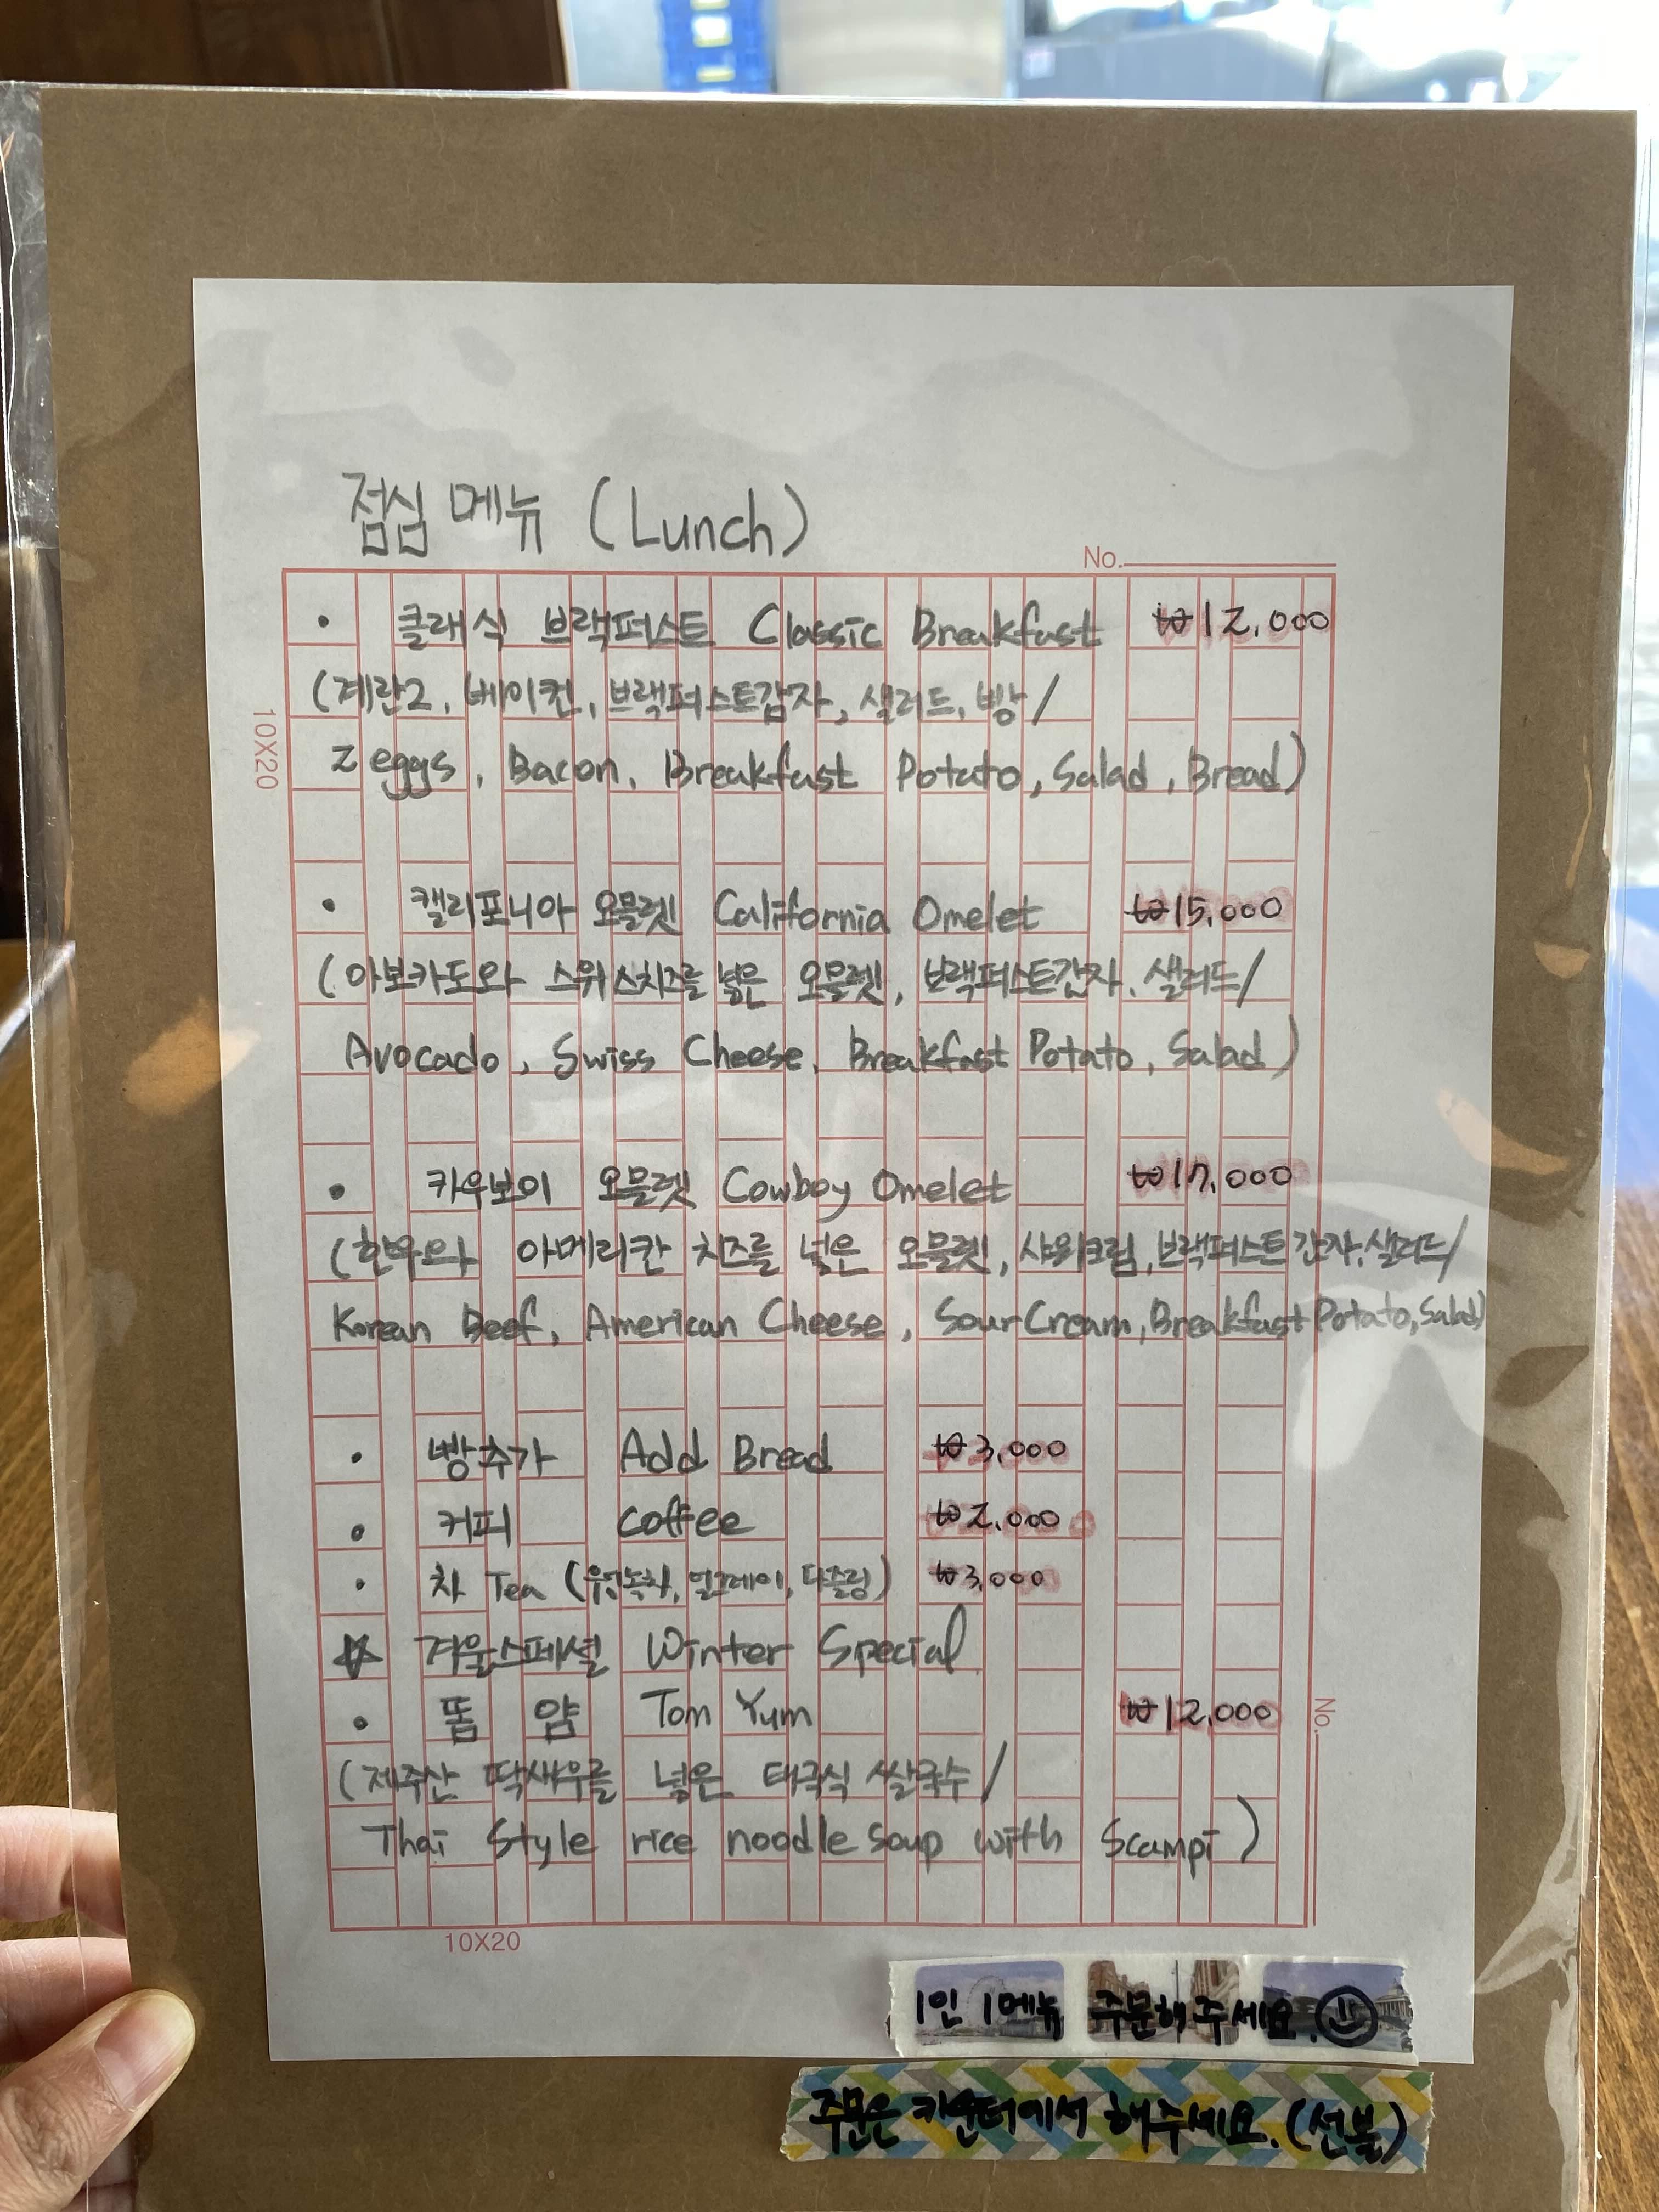 점심 메뉴 (Lunch)
No.
· 클래식 브랙퍼스트 Classic Breakfast ₩12,000
(계란2, 베이컨, 브랙퍼스트감자, 샐러드, 빵/
2 eggs, Bacon, Breakfast Potato, Salad, Bread)
10X20
· 캘리포니아 오믈렛 California Omelet ₩15,000
(아보카도와 스위스치즈를 넣은 오믈렛, 브랙퍼스트감자, 샐러드/
Avocado, Swiss Cheese, Breakfast Potato, Salad)
· 카우보이 오믈렛 Cowboy Omelet ₩17,000
(한우와 아메리칸 치즈를 넣은 오믈렛, 사워크림, 브랙퍼스트감자, 샐러드/
Korean Beef, American Cheese, Sour Cream, Breakfast Potato, Salad)
· 빵추가 Add Bread ₩3,000
· 커피 coffee ₩2,000
· 차 Tea (유기녹차, 얼그레이, 다즐링) ₩3,000
☆ 겨울스페셜 Winter Special
· 똠 얌 Tom Yum ₩12,000
No.
(제주산 딱새우를 넣은 태국식 쌀국수/
Thai Style rice noodle soup with Scampi)
10X20
1인 1메뉴 주문해 주세요.
주문은 카운터에서 해주세요. (선불)